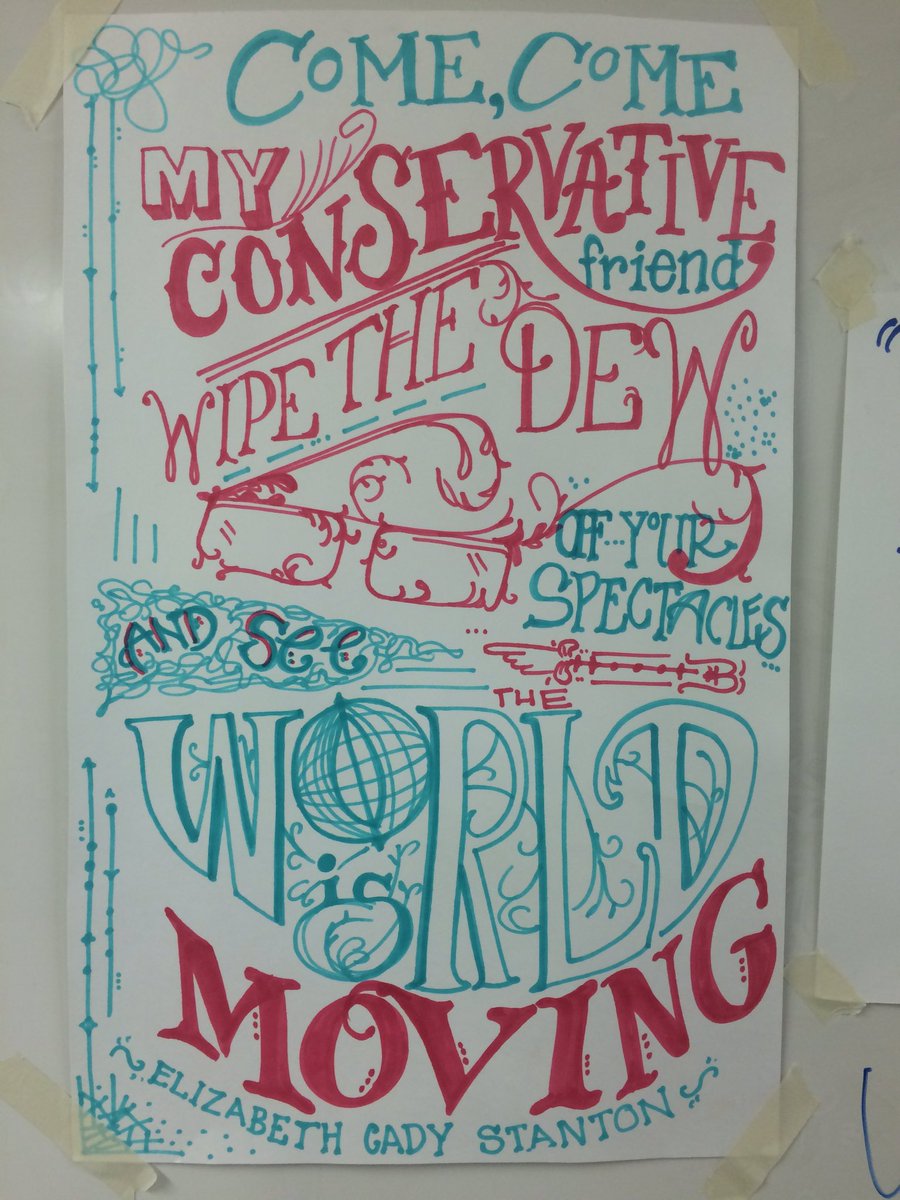 COME, COME
MY
CONSERVATIVE
friend
WIPE THE DEW
OFF YOUR
SPECTACLES
AND See
THE
WORLD
is
MOVING
~ELIZABETH CADY STANTON~